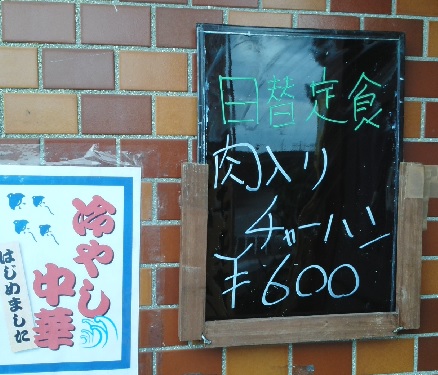 日替定食
肉入り
チャーハン
¥600
冷やし
中華
はじめました